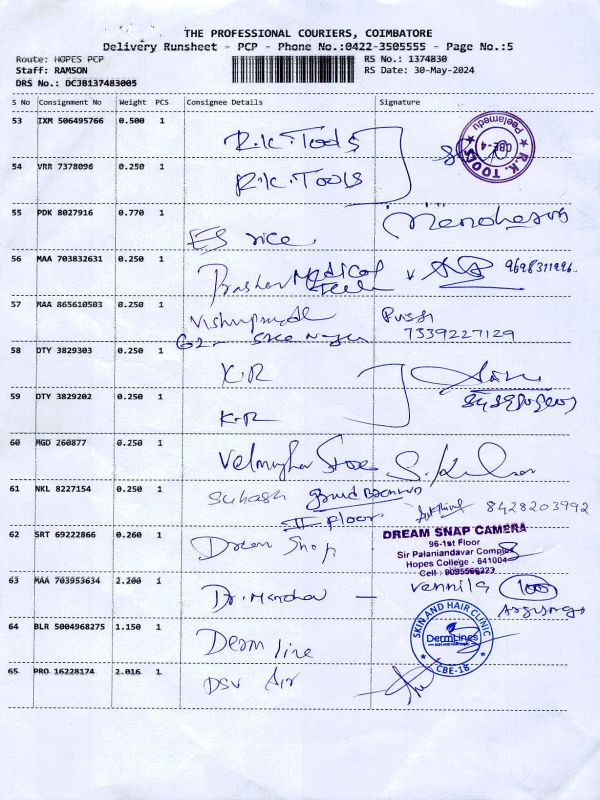 THE PROFESSIONAL COURIERS, COIMBATORE
Delivery Runsheet - PCP - Phone No.:0422-3505555 - Page No.:5
Route: HOPES PCP
RS No.: 1374830
Staff: RAMSON
RS Date: 30-May-2024
DRS No.: DCJB137483005
S No Consignment No Weight PCS Consignee Details Signature
53 IXM 506495766 0.500 1 R.K.Tools
R.K. TOOLS Peelamedu CBE-4
54 VRR 7378096 0.250 1 R.K.Tools
55 PDK 8027916 0.770 1
56 MAA 703832631 0.250 1 Medical 9698311996
57 MAA 865610503 0.250 1
7539227129
58 DTY 3829303 0.250 1 K.R
59 DTY 3829202 0.250 1 K.R
60 MGD 260877 0.250 1
61 NKL 8227154 0.250 1 Subash 8428203992
II Floor
62 SRT 69222866 0.260 1 Dream Snap
DREAM SNAP CAMERA
96-1st Floor
Sir Palaniandavar Complex
Hopes College - 641004
63 MAA 703953634 2.200 1 Dr. Manohar - Vennila
64 BLR 5004968275 1.150 1 Derm line
SKIN AND HAIR CLINIC
DermLines
CBE-18
65 PRO 16228174 2.016 1 DSV Air